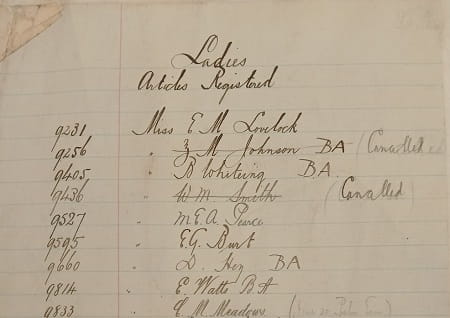 Ladies
Articles Registered
9231 Miss E M Lovelock
9256 " M Johnson BA (Cancelled)
9405 " B Whiteing B.A.
9436 " W.M. Smith (Cancelled)
9527 " M.E.A. Pearce
9595 " E.G. Burt
9660 " D. Hey BA
9814 " E. Watts B.A
9833 " E. M. Meadows